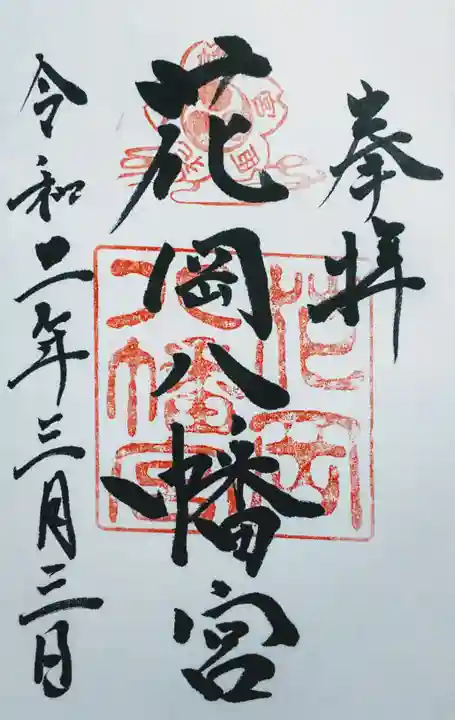 奉拝
花岡八幡宮
花岡
八幡宮
令和二年三月三日